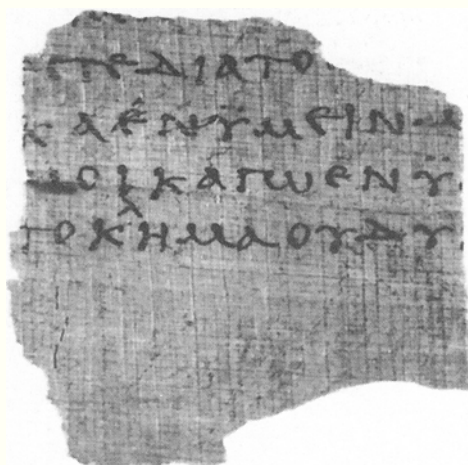 ϹΤΕΔΙΑΤΟ
ΚΑΕΝΫΜΕΙΝ
ΟΙΚΑΓΩΕΝΫ
ΤΟΚΛΗΜΑΟΥΔΥ